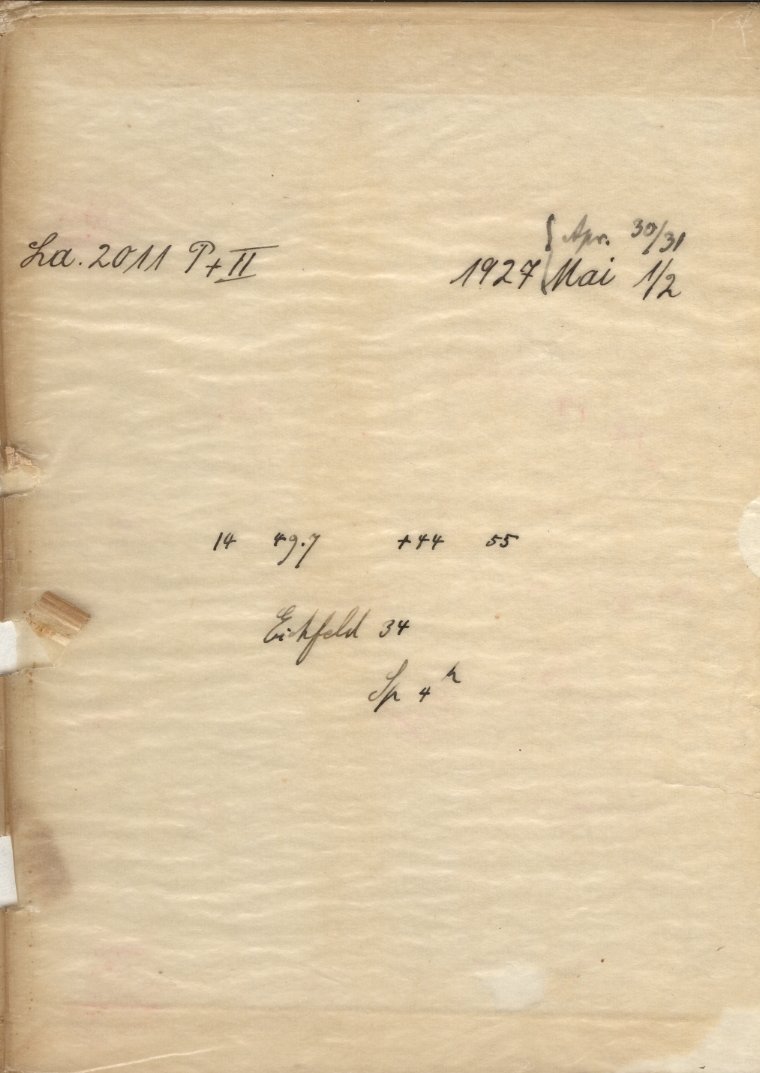 La. 2011 P+II
1927 { Apr. 30/31
Mai 1/2
14 49.7 +44 55
Eichfeld 34
Sp 4h